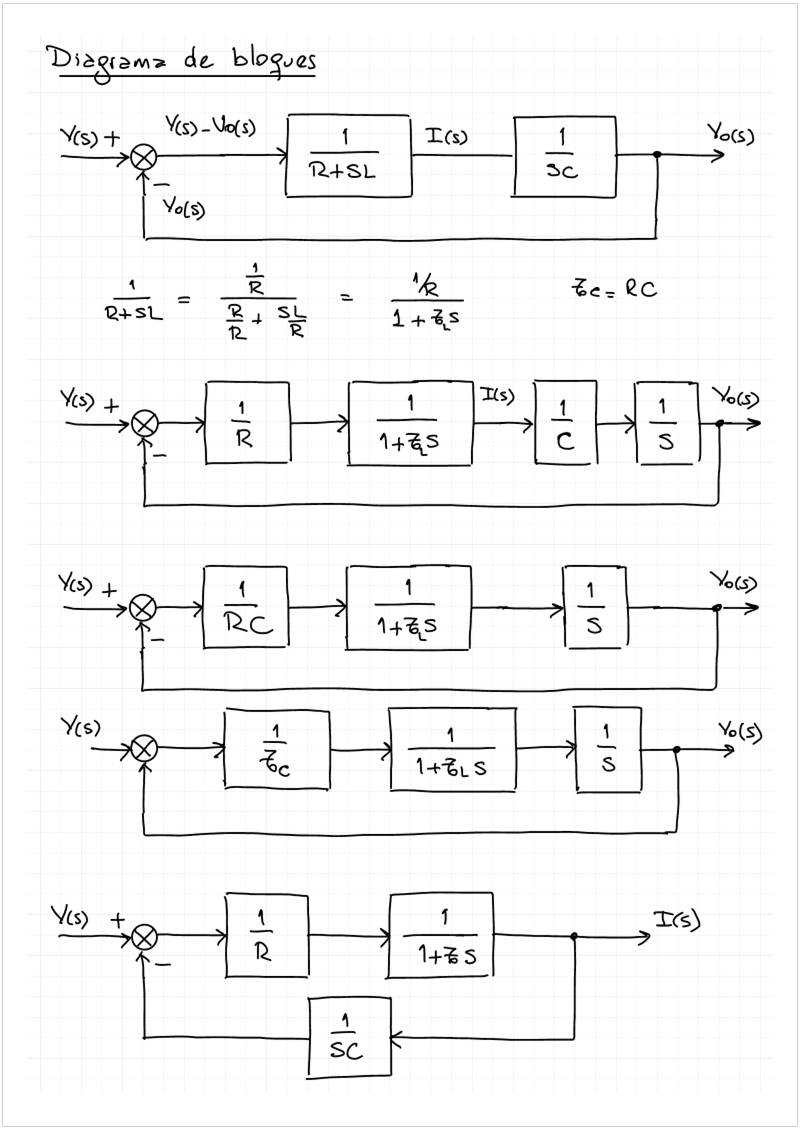 Diagrama de bloques
V(s) + V(s)-Vo(s) 1/(R+SL) I(s) 1/SC Vo(s)
−
Vo(s)
1/(R+SL) = (1/R)/(R/R + SL/R) = (1/R)/(1+τLS) τc = RC
V(s) + 1/R 1/(1+τLS) I(s) 1/C 1/S Vo(s)
−
V(s) + 1/RC 1/(1+τLS) 1/S Vo(s)
−
V(s) 1/τC 1/(1+τLS) 1/S Vo(s)
V(s) + 1/R 1/(1+τS) I(s)
−
1/SC